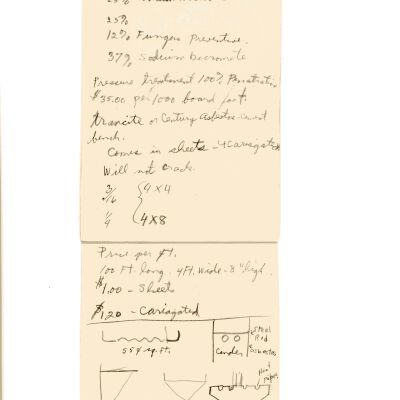 25%
12% Fungus Preventive.
37% Sodium Dicromate
Pressure treatment 100% Penetration
$35.00 per/1000 board foot.
Trancite or Century Asbestos-cement
bench.
Comes in sheets - 4 Cariagated
Will not crack.
3/16 4 x 4
1/4 4 X 8
Price per ft.
100 FT. long. 4 FT. Wide - 8" high.
$1.00 - Sheets
$1.20 - Cariagated
55¢ sq. FT.
Cender
Steel
Rod
Asbestos
Heat
pipes